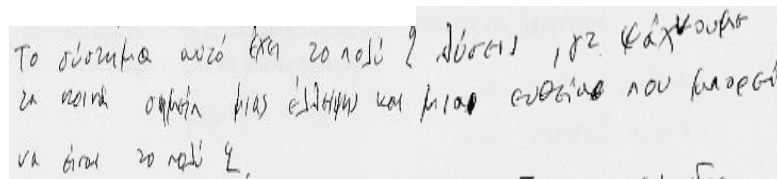 Το σύστημα αυτό έχει το πολύ 2 λύσεις, γτ ψάχνουμε
τα κοινά σημεία μιας έλλειψης και μιας ευθείας που μπορεί
να είναι το πολύ 2.